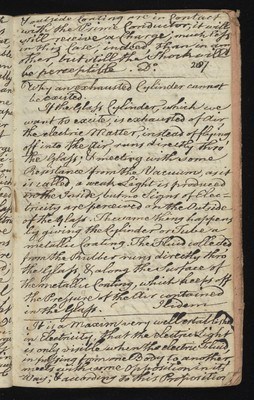 outside Coating are in Contact
with the Prime Conductor, it will
still receive a Charge; much less
in this Case, indeed than in ano
ther, but still the Shock will
be perceptible. Do 281
Why an exhausted Cylinder cannot
be excited
If the Glass Cylinder, which we
want to excite, is exhausted of air
the electric Matter, instead of flying
off into the Air, runs directly thro
the Glass; & meeting with some
Resistance from the Vacuum, as it
is called a weak Light is produced
in the Inside, but no Signs of Elec-
tricity are perceived on the Outside
of the Glass. The same thing happens
by giving the Cylinder or Tube a
metallic Coating. The Fluid collected
from the Rubber runs directly thro
the Glass, & along the Surface of
the metallic Coating, which keeps off
the Pressure of the Air contained
in the Glass. Ibidem
It is a Maxim very well established
in Electricity, that the electric Light
is only visible when the electric Fluid
in passing from one Body to another
meets with some Opposition in its
Way; & according to this Proposition